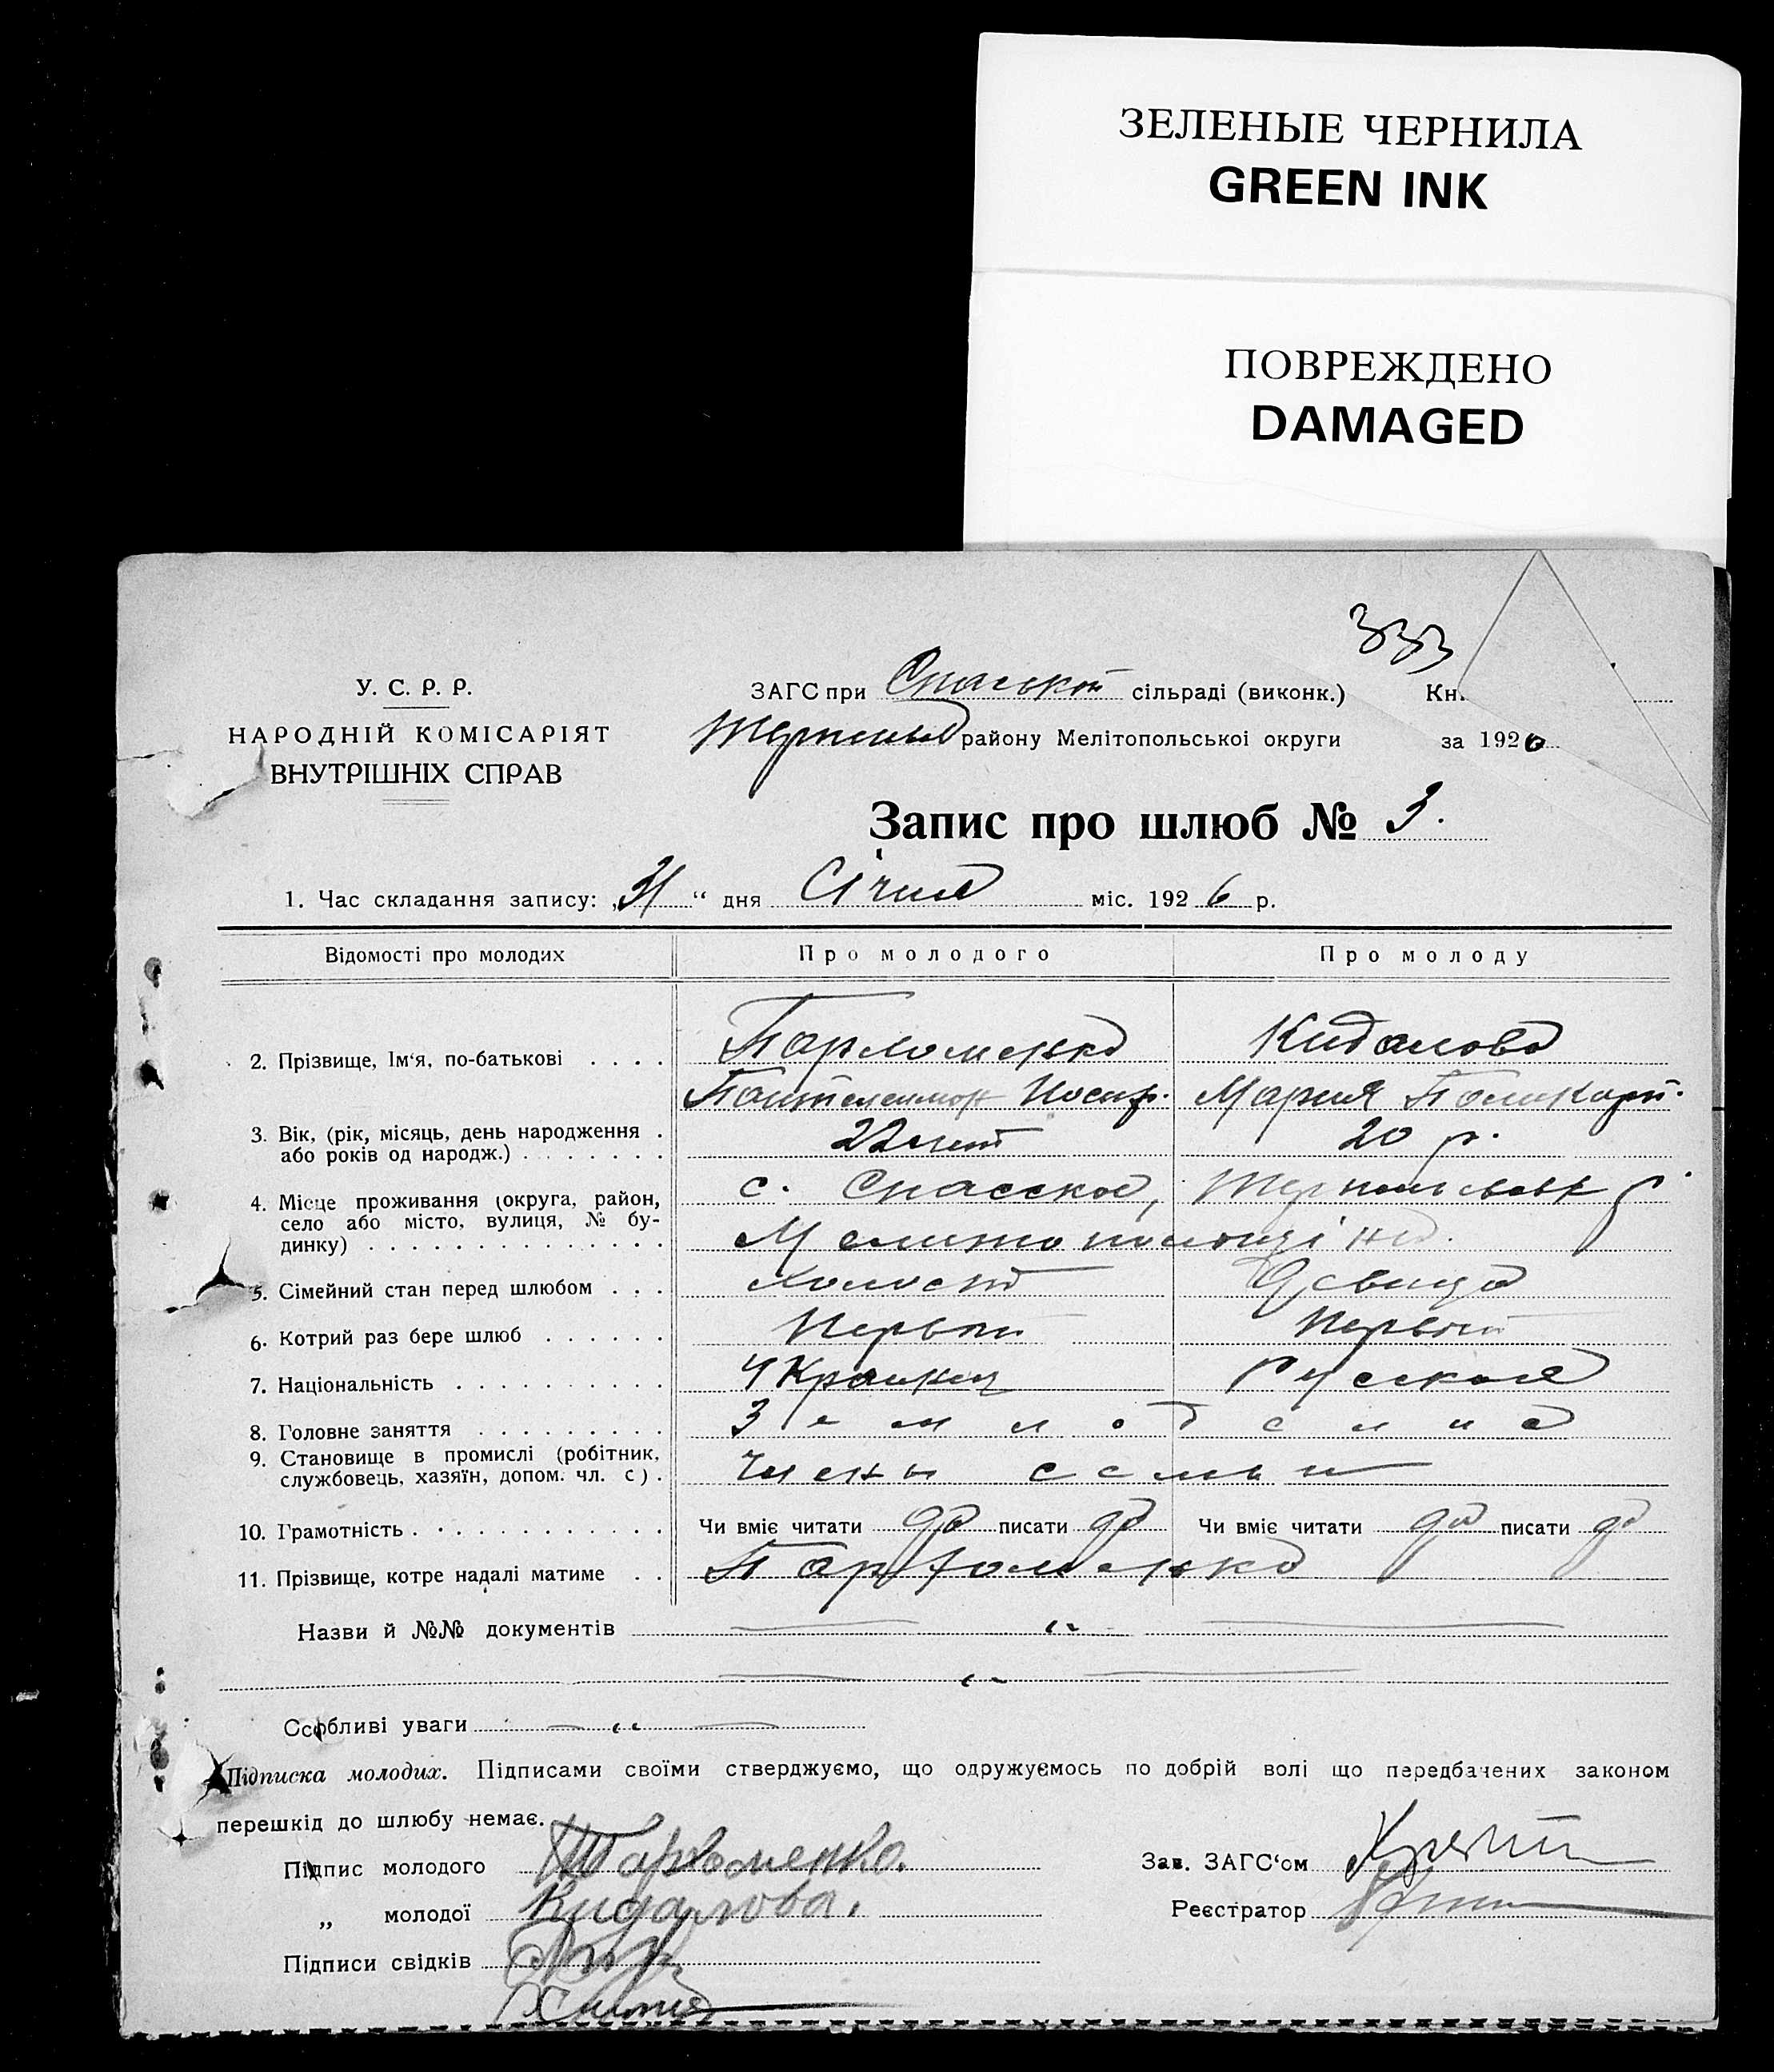 ЗЕЛЕНЫЕ ЧЕРНИЛА
GREEN INK
ПОВРЕЖДЕНО
DAMAGED
333
У. С. Р. Р.
НАРОДНІЙ КОМІСАРІЯТ
ВНУТРІШНІХ СПРАВ
ЗАГС при Спаській сільраді (виконк.) Кн.
району Мелітопольської округи за 1926
Запис про шлюб № 3.
1. Час складання запису: „31“ дня Січня міс. 1926 р.
Відомості про молодих Про молодого Про молоду
2. Прізвище, Ім'я, по-батькові . . . . Парфоменко Кидалова
Пантелеимон Иосиф. Мария Поликарп.
3. Вік, (рік, місяць, день народження . або років од народж.) . . . . . . . 22 лет 20 р.
4. Місце проживання (округа, район, с. Спасское,
село або місто, вулиця, № бу-
динку) . . . . . . . . . . . . . .
5. Сімейний стан перед шлюбом . . . Холост Девица
6. Котрий раз бере шлюб . . . . . . Первый Первый
7. Національність . . . . . . . . . . Украинец Русская
8. Головне заняття . . . . . . . . . Земледелие
9. Становище в промислі (робітник,
службовець, хазяїн, допом. чл. с) . Члены семьи
10. Грамотність . . . . . . . . . . . . Чи вміє читати да писати да Чи вміє читати да писати да
11. Прізвище, котре надалі матиме . . Парфоменко
Назви й №№ документів — „ —
— „ —
Особливі уваги — „ —
Підписка молодих. Підписами своїми стверджуємо, що одружуємось по добрій волі що передбачених законом
перешкід до шлюбу немає.
Підпис молодого Парфоменко. Зав. ЗАГС'ом
„ молодої Кидалова. Реєстратор
Підписи свідків